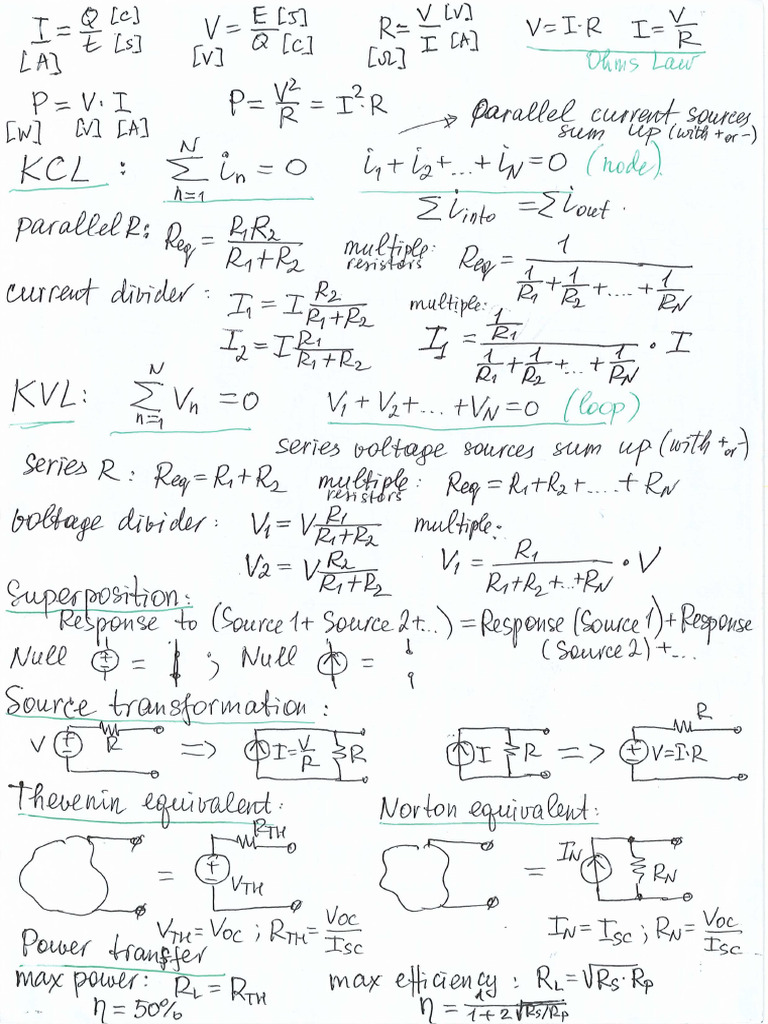 I = Q [C] / t [s] [A]   V = E [J] / Q [C] [V]   R = V [V] / I [A] [Ω]   V = I·R   I = V/R
Ohms Law
P = V·I   P = V²/R = I²·R   → parallel current sources
[W] [V] [A]   sum up (with + or -)
KCL : Σ(n=1 to N) in = 0   i1 + i2 + ... + iN = 0 (node)
Σ i into = Σ i out.
parallel R: Req = R1R2 / (R1+R2)   multiple resistors: Req = 1 / (1/R1 + 1/R2 + .... + 1/RN)
current divider: I1 = I R2/(R1+R2)   multiple: I1 = (1/R1) / (1/R1 + 1/R2 + ... + 1/RN) · I
I2 = I R1/(R1+R2)
KVL: Σ(n=1 to N) Vn = 0   V1 + V2 + ... + VN = 0 (loop)
series voltage sources sum up (with + or -)
series R: Req = R1 + R2   multiple resistors: Req = R1 + R2 + .... + RN
voltage divider: V1 = V R1/(R1+R2)   multiple: V1 = R1 / (R1+R2+..+RN) · V
V2 = V R2/(R1+R2)
Superposition:
Response to (Source 1 + Source 2 + ...) = Response (Source 1) + Response
(Source 2) + ...
Null = ; Null =
Source transformation:
V R => I = V/R R   I R => V = I·R R
Thevenin equivalent:   Norton equivalent:
= RTH VTH   = IN RN
VTH = VOC ; RTH = VOC/ISC   IN = ISC ; RN = VOC/ISC
Power transfer
max power: RL = RTH   max efficiency: RL = √RS·RP
η = 50%   η = 1 / (1 + 2√RS/RP)